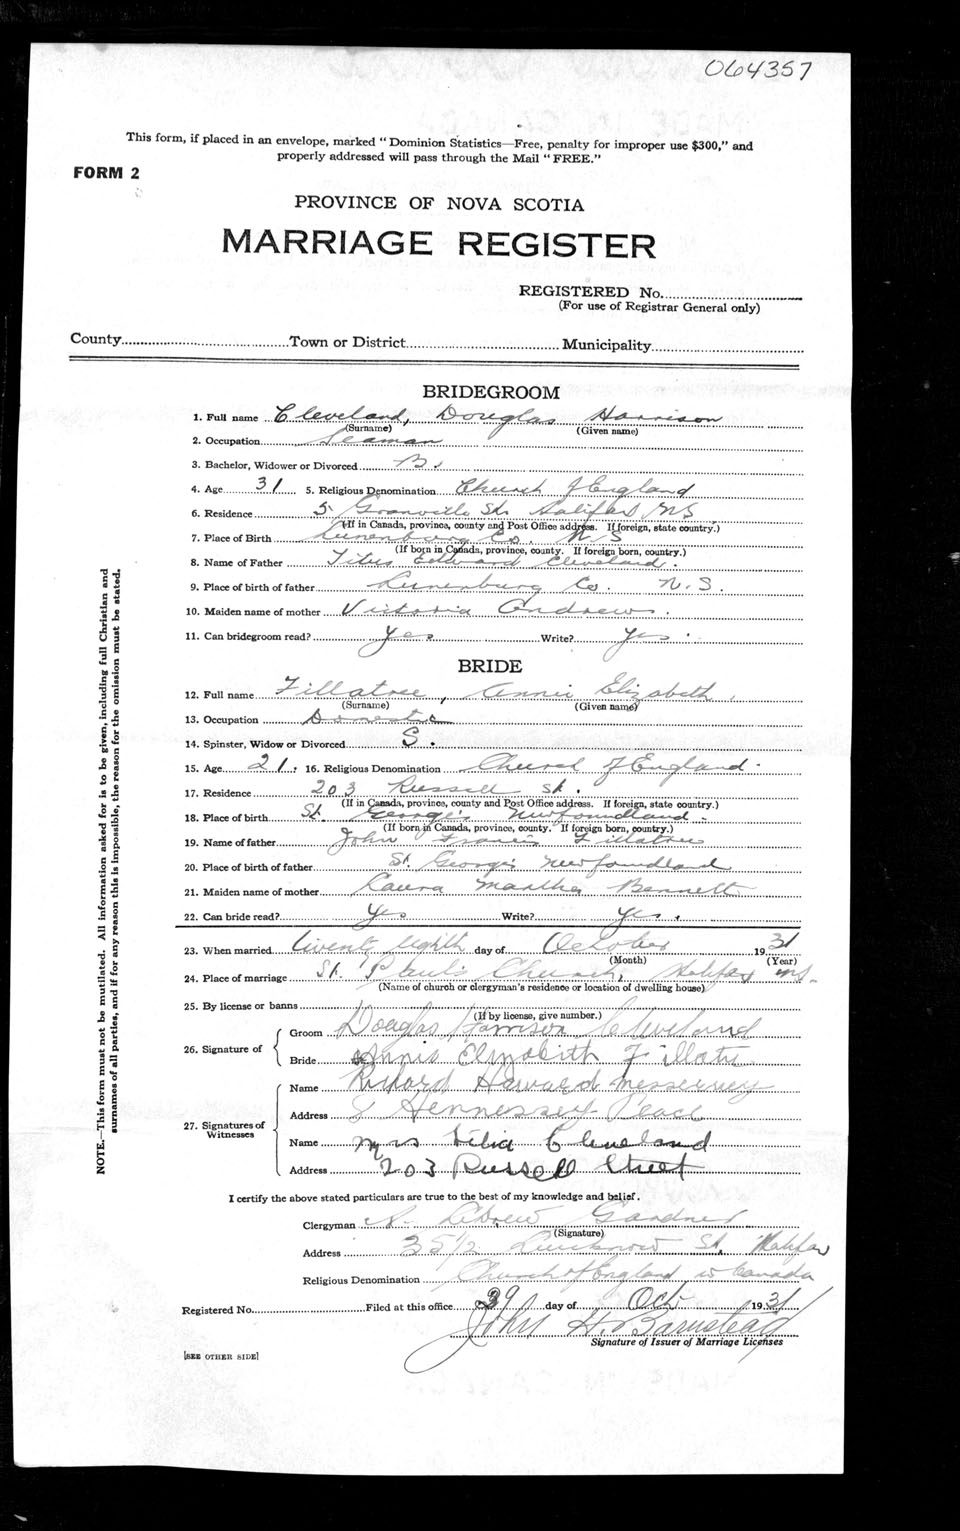 064357
This form, if placed in an envelope, marked "Dominion Statistics—Free, penalty for improper use $300," and
properly addressed will pass through the Mail "FREE."
FORM 2
PROVINCE OF NOVA SCOTIA
MARRIAGE REGISTER
REGISTERED No.
(For use of Registrar General only)
County Town or District Municipality
BRIDEGROOM
1. Full name Cleveland, Douglas Harrison
(Surname) (Given name)
2. Occupation Seaman
3. Bachelor, Widower or Divorced B.
4. Age 31 5. Religious Denomination Church of England
6. Residence 5 Granville St. Halifax NS
(If in Canada, province, county and Post Office address. If foreign, state country.)
7. Place of Birth Lunenburg Co. N.S
(If born in Canada, province, county. If foreign born, country.)
8. Name of Father Titus Edward Cleveland.
9. Place of birth of father Lunenburg Co. N.S.
10. Maiden name of mother Victoria Andrews.
11. Can bridegroom read? Yes Write? Yes.
BRIDE
12. Full name Fillatree, Annie Elizabeth
(Surname) (Given name)
13. Occupation Domestic
14. Spinster, Widow or Divorced S.
15. Age 21. 16. Religious Denomination Church of England.
17. Residence 203 Russell St.
(If in Canada, province, county and Post Office address. If foreign, state country.)
18. Place of birth St. George's Newfoundland.
(If born in Canada, province, county. If foreign born, country.)
19. Name of father John Francis Fillatree
20. Place of birth of father St. George's Newfoundland
21. Maiden name of mother Laura Martha Bennett
22. Can bride read? Yes Write? Yes.
23. When married Twenty eighth day of October 1931
(Month) (Year)
24. Place of marriage St. Paul's Church, Halifax NS.
(Name of church or clergyman's residence or location of dwelling house)
25. By license or banns
(If by license, give number.)
26. Signature of
Groom Douglas Harrison Cleveland
Bride Annie Elizabeth
27. Signatures of Witnesses
Name Richard Howard
Address 8 Hennessey Place
Name Mrs Cleveland
Address 203 Russell Street
I certify the above stated particulars are true to the best of my knowledge and belief.
Clergyman Gardner
(Signature)
Address 35 1/2 Lucknow St. Halifax
Religious Denomination Church of England in Canada
Registered No. Filed at this office day of Oct 1931
John H. Barnstead
Signature of Issuer of Marriage Licenses
[SEE OTHER SIDE]
NOTE.—This form must not be mutilated. All information asked for is to be given, including full Christian and
surnames of all parties, and if for any reason this is impossible, the reason for the omission must be stated.